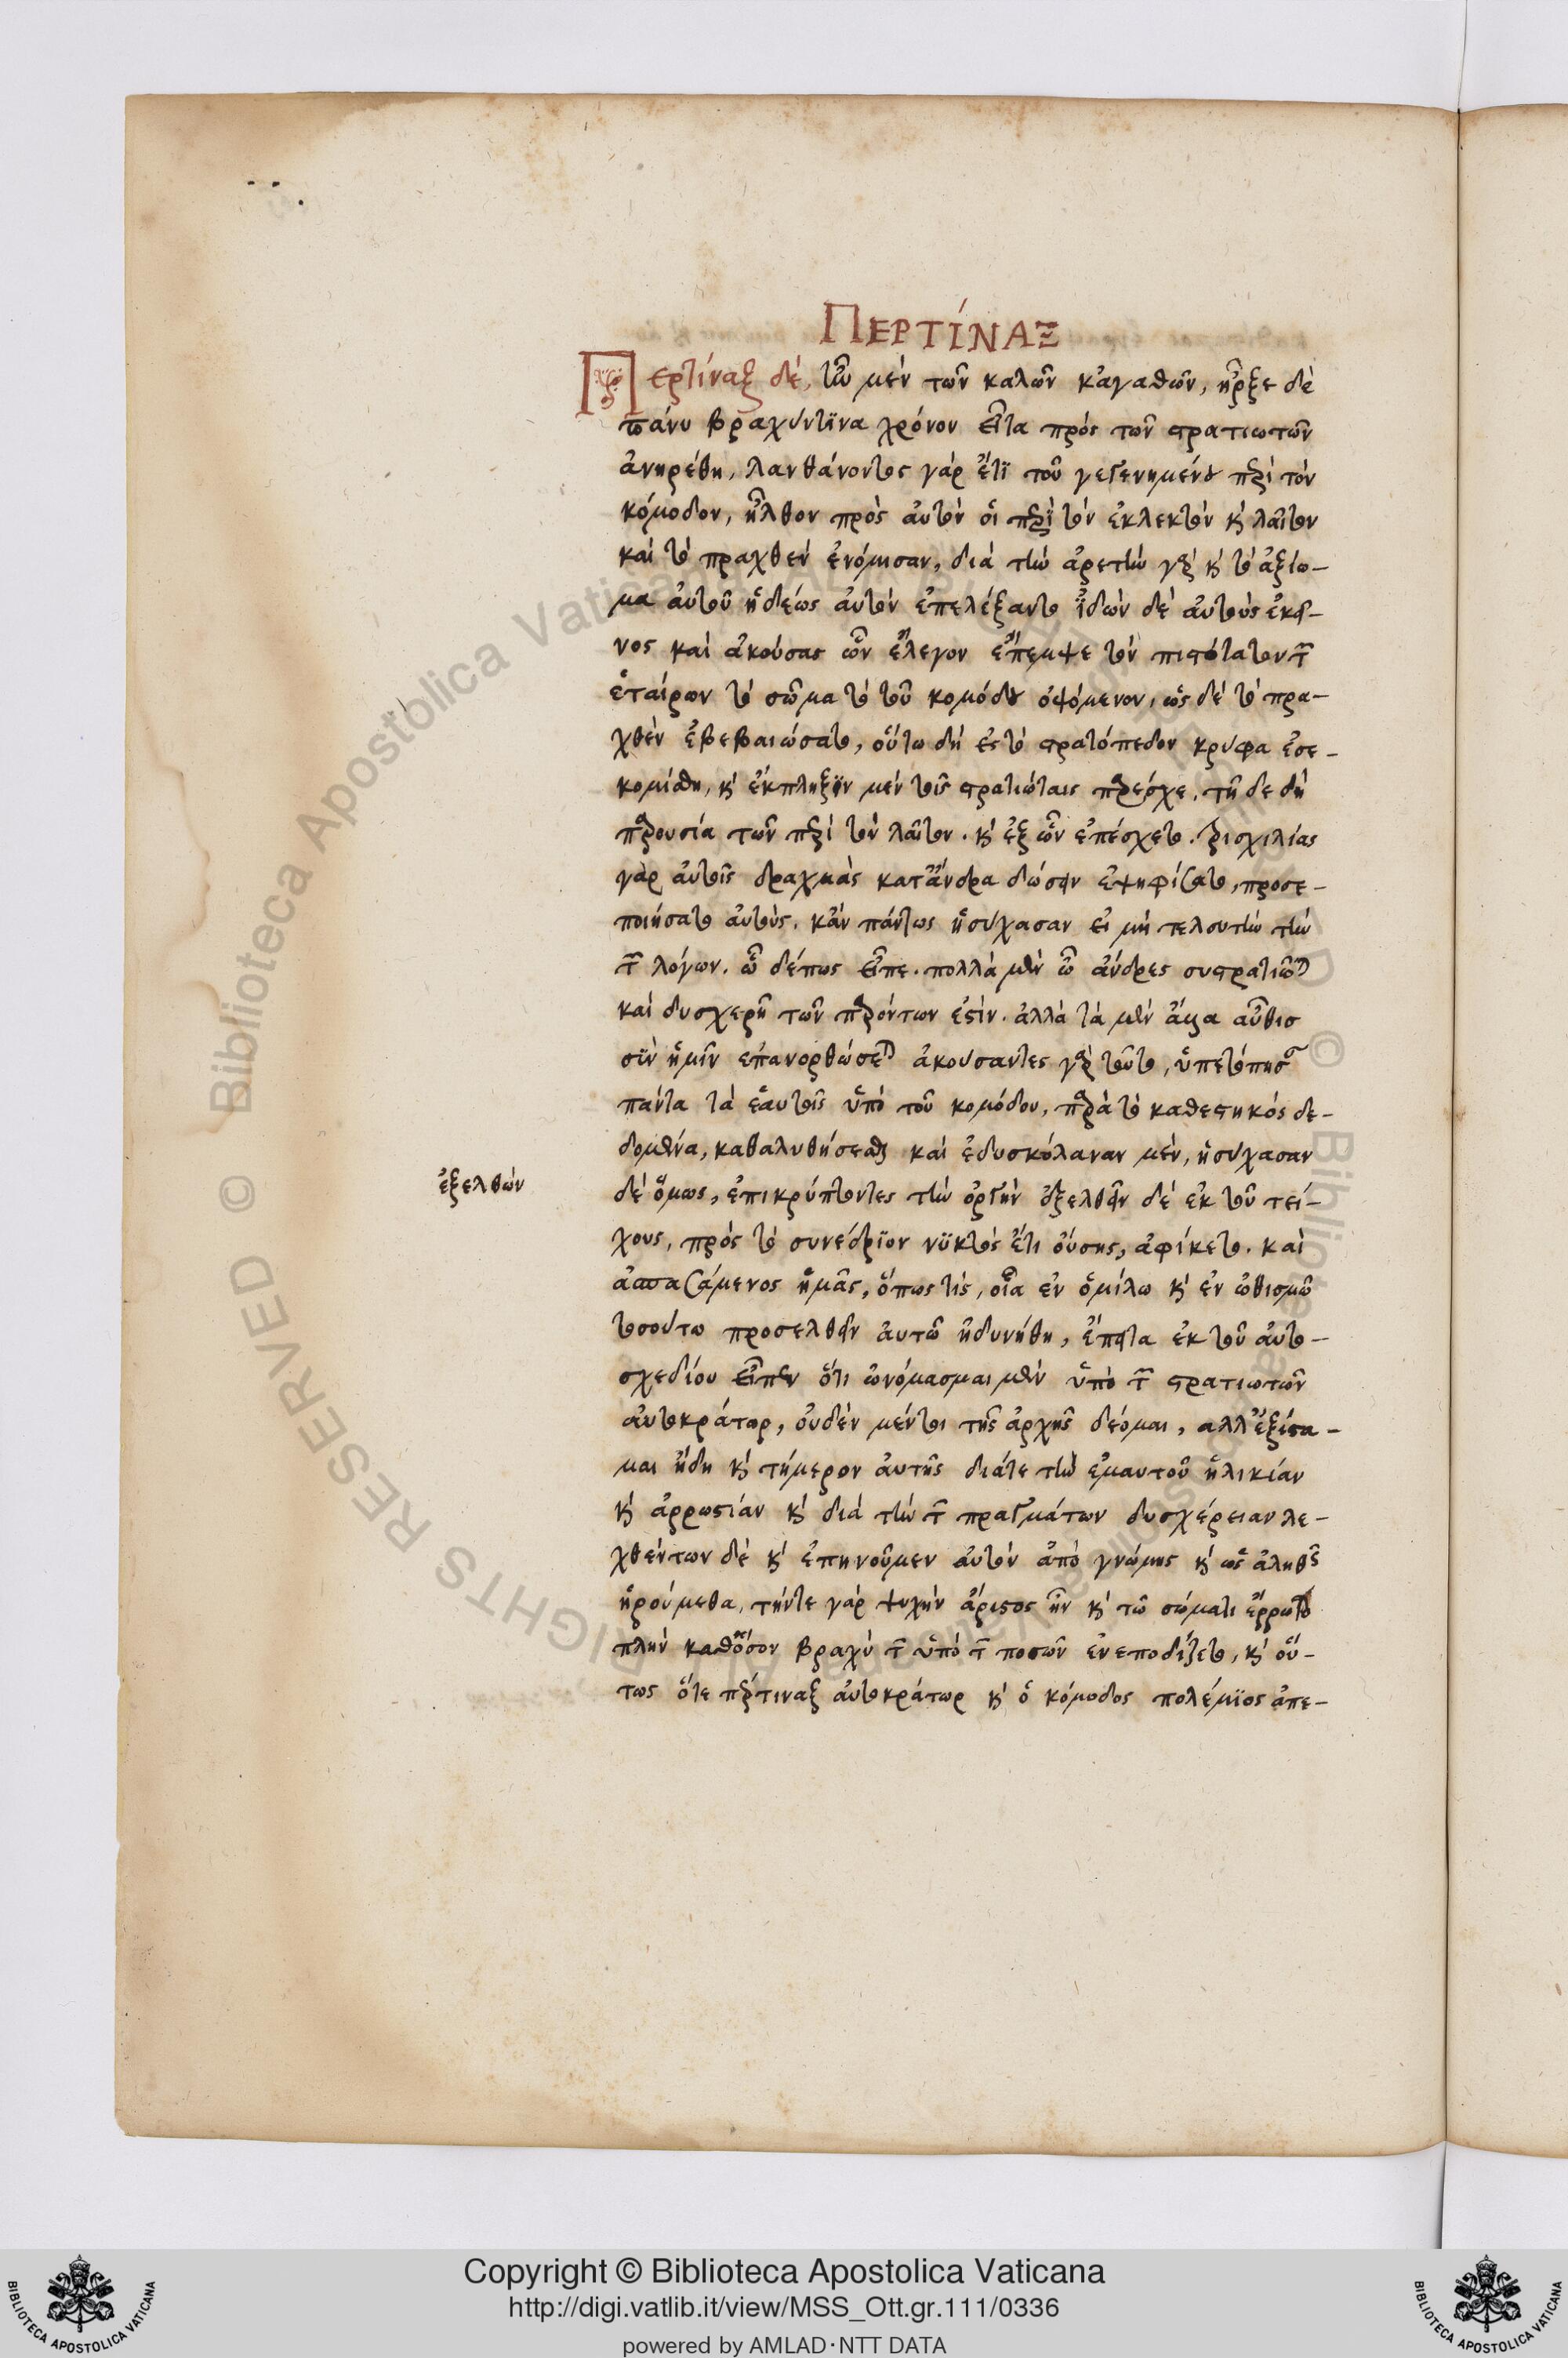 ΠΕΡΤΊΝΑΞ
Περτίναξ δὲ, ἦν μὲν τῶν καλῶν κἀγαθῶν, ἦρξε δὲ
πάνυ βραχύν τινα χρόνον εἶτα πρὸς τῶν στρατιωτῶν
ἀνῃρέθη, λανθάνοντος γὰρ ἔτι τοῦ γεγενημένου περὶ τὸν
κόμοδον, ἦλθον πρὸς αὐτὸν οἱ περὶ τὸν ἐκλεκτὸν καὶ λαῖτον
καὶ τὸ πραχθὲν ἐνόμισαν, διὰ τὴν ἀρετὴν γὰρ καὶ τὸ ἀξίω-
μα αὐτοῦ ἡδέως αὐτὸν ἐπελέξαντο ἰδὼν δὲ αὐτοὺς ἐκεῖ-
νος καὶ ἀκούσας ὧν ἔλεγον ἔπεμψε τὸν πιστότατον τῶν
ἑταίρων τὸ σῶμα τὸ τοῦ κομόδου ὀψόμενον, ὡς δὲ τὸ πρα-
χθὲν ἐβεβαιώσατο, οὕτω δὴ ἐς τὸ στρατόπεδον κρύφα ἐσε-
κομίσθη, καὶ ἔκπληξιν μὲν τοῖς στρατιώταις παρέσχε, τῇ δε δὴ
παρουσία τῶν περὶ τὸν λαῖτον. καὶ ἐξ ὧν ἐπέσχετο. τρισχιλίας
γὰρ αὐτοῖς δραχμὰς κατ ἄνδρα δώσειν ἐψηφίσατο, προσε-
ποιήσατο αὐτοὺς. κἂν πάντως ἡσύχασαν εἰ μὴ τελευτὴν τὴν
τῶν λόγων. ὧδέ πως εἶπε. πολλὰ μὲν ὦ ἄνδρες συστρατιῶται
καὶ δυσχερῆ τῶν παρόντων ἐστὶν. ἀλλὰ τὰ μὲν ἄλλα αὖθισ
σὺν ἡμῖν ἐπανορθώσεται ἀκούσαντες γὰρ τοῦτο, ὑπετόπησαν
πάντα τὰ ἑαυτοῖς ὑπὸ τοῦ κομόδου, παρὰ τὸ καθεστηκὸς δε-
δομένα, καθαλυθήσεσθαι καὶ ἐδυσκόλαναν μὲν, ἡσύχασαν
δὲ ὅμως, ἐπικρύπτοντες τὴν ὀργὴν ἐξελθεῖν δὲ ἐκ τοῦ τεί-
χους, πρὸς τὸ συνέδριον νυκτὸς ἔτι οὔσης, ἀφίκετο. καὶ
ἀσπασάμενος ἡμᾶς, ὅπως τὶς, οἷα ἐν ὁμίλω καὶ ἐν ὠθισμῶ
τοσούτω προσελθεῖν αὐτῶ ἠδυνήθη, ἔπειτα ἐκ τοῦ αὐτο-
σχεδίου εἶπεν ὅτι ὠνόμασμαι μὲν ὑπὸ τῶν στρατιωτῶν
αὐτοκράτορ, οὐδὲν μέντοι τῆς ἀρχῆς δέομαι, αλλ ἐξίστα-
μαι ἤδη καὶ τήμερον αὐτῆς διάτε τὴν ἐμαυτοῦ ἡλικίαν
καὶ ἀρρωστίαν καὶ διὰ τὴν τῶν πραγμάτων δυσχέρειαν λε-
χθέντων δὲ καὶ ἐπηνοῦμεν αὐτὸν ἀπὸ γνώμης καὶ ὡς ἀληθῶς
ἡρούμεθα, τήντε γὰρ ψυχὴν ἄριστος ἦν καὶ τῶ σώματι ἔρρωτο
πλὴν καθόσον βραχὺ τῶν ὑπὸ τῶν ποσῶν ἐνεποδίζετο, καὶ οὕ-
τως ὅτε περτιναξ αὐτοκράτωρ καὶ ὁ κόμοδος πολέμιος ἀπε-
ἐξελθὼν
Copyright © Biblioteca Apostolica Vaticana
http://digi.vatlib.it/view/MSS_Ott.gr.111/0336
powered by AMLAD·NTT DATA